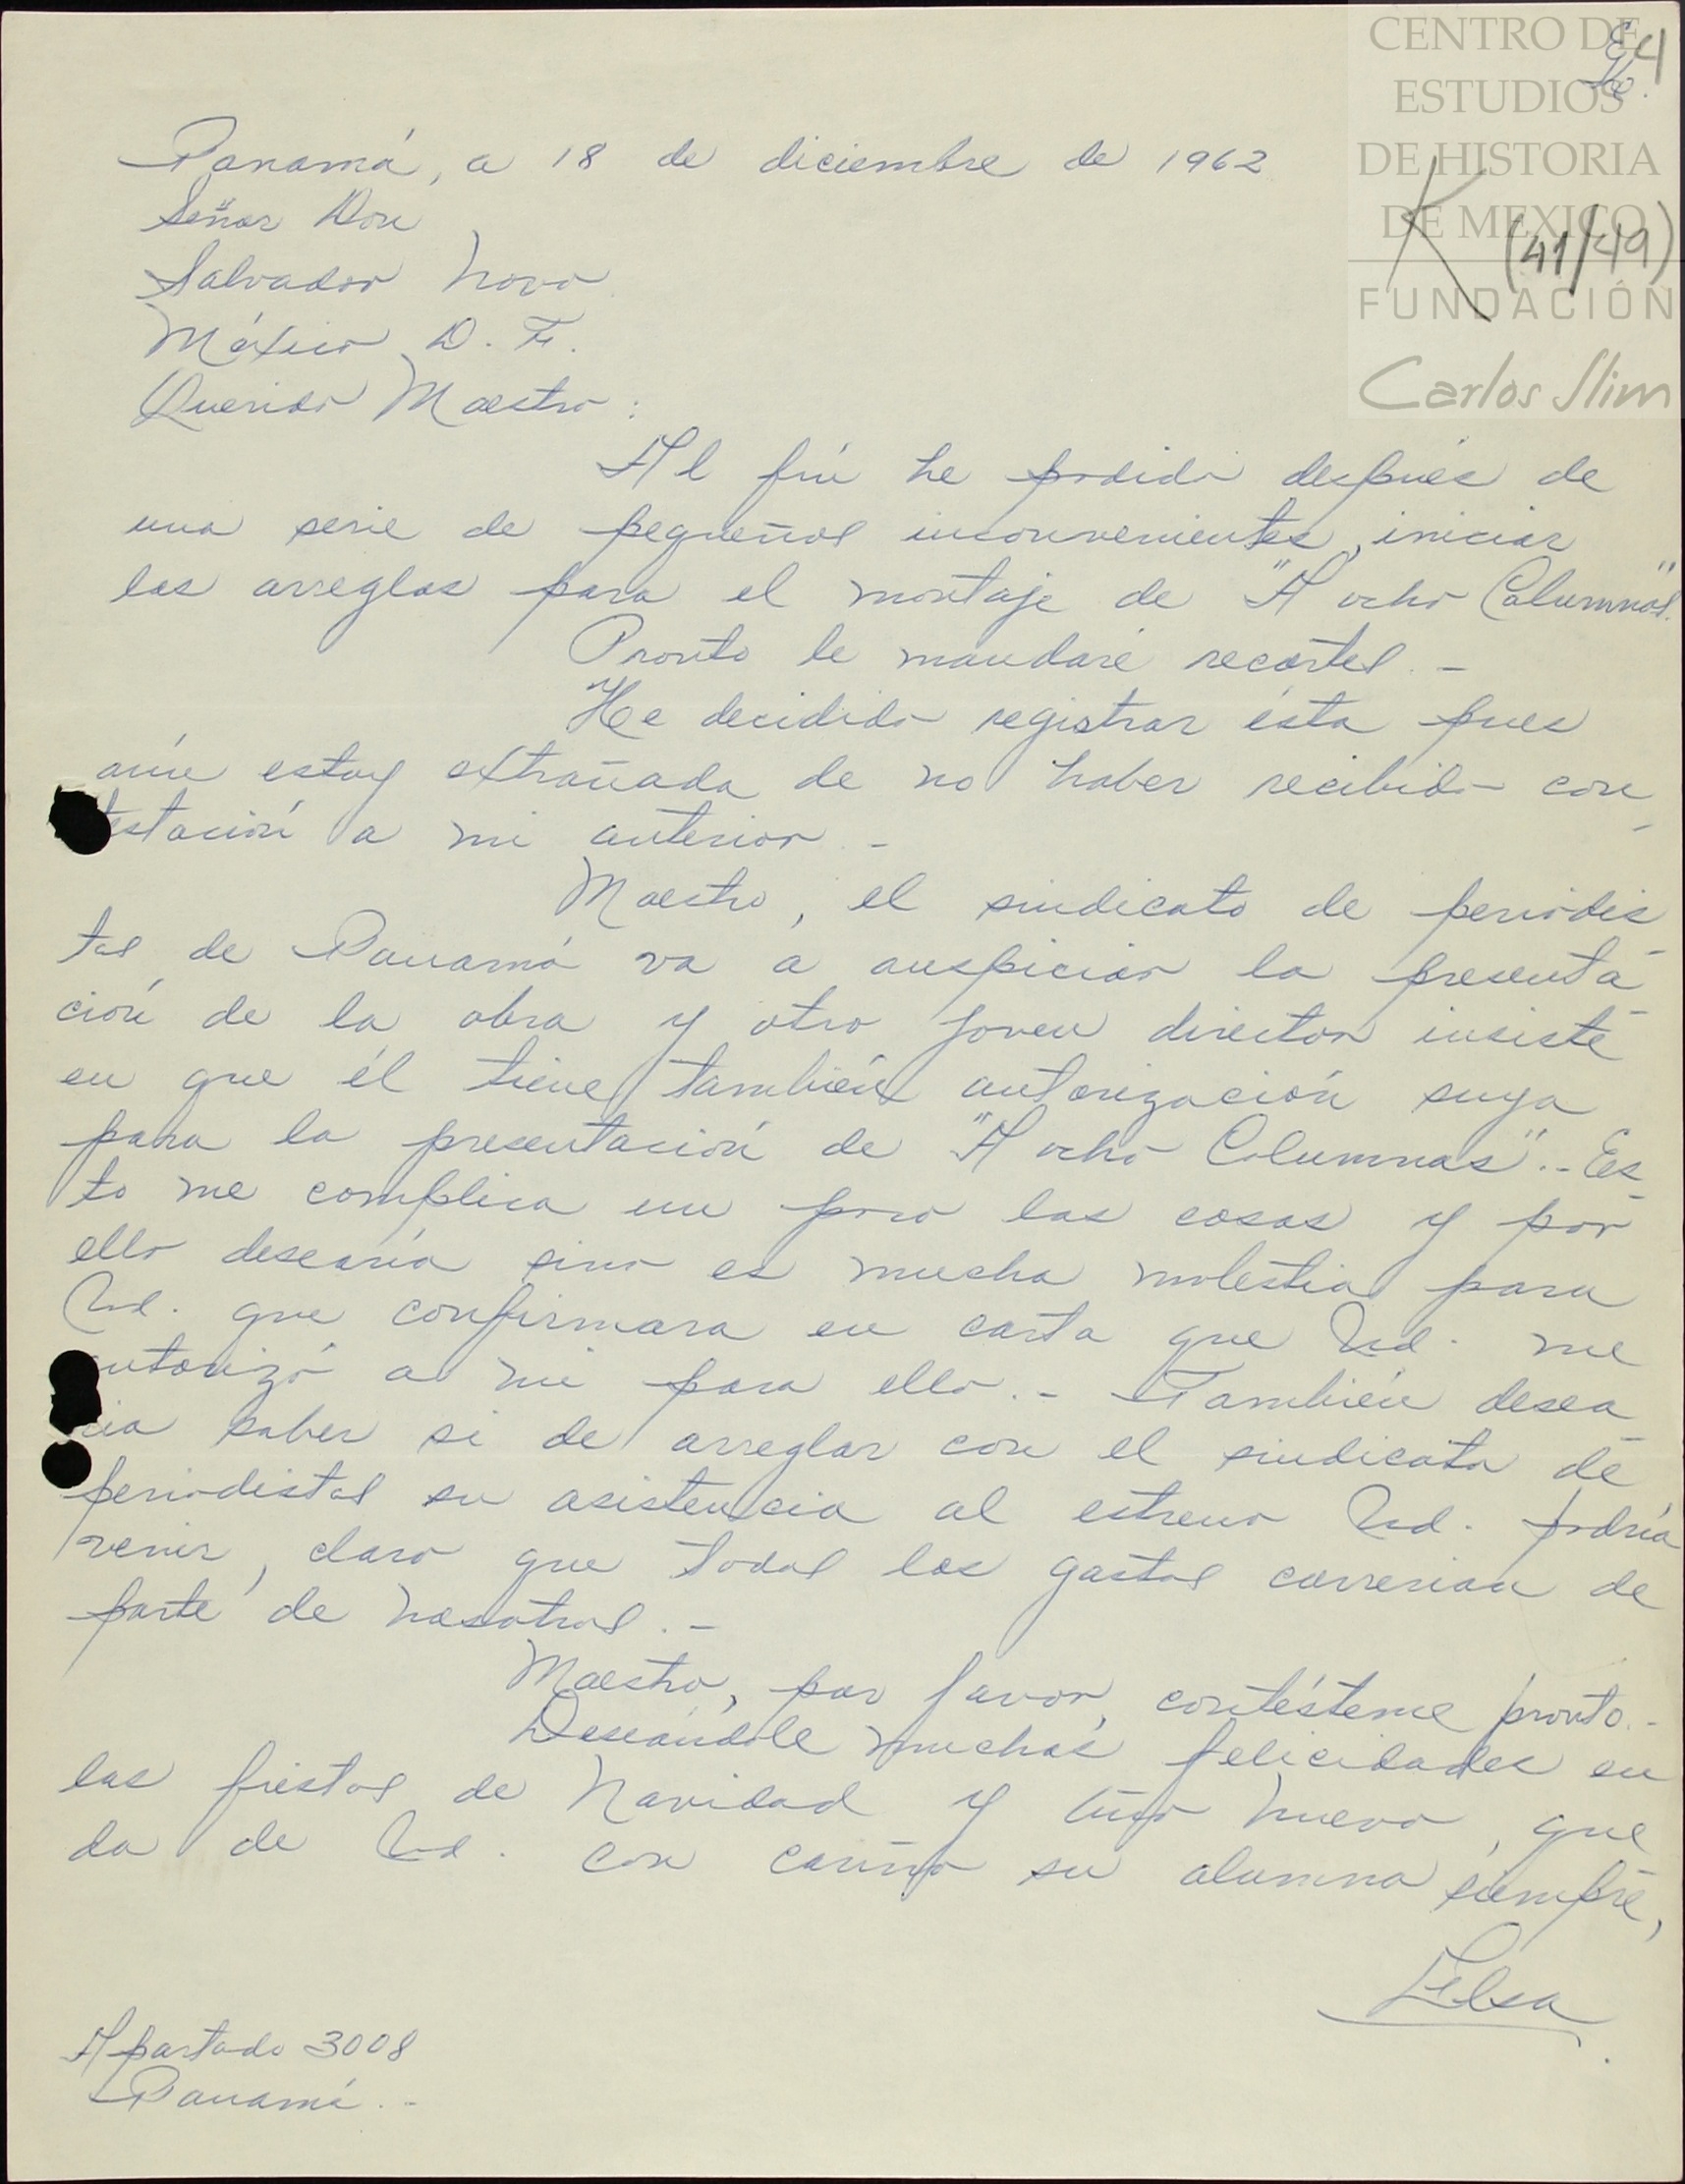 CENTRO DE
ESTUDIOS
DE HISTORIA
DE MEXICO
FUNDACIÓN
Carlos Slim
4
K (41/49)
Panamá, a 18 de diciembre de 1962
Señor Don
Salvador Novo
México D. F.
Querido Maestro:
Al fín he podido después de
una serie de pequeños inconvenientes, iniciar
los arreglos para el montaje de "A ocho Columnas".
Pronto le mandaré recortes.-
He decidido registrar ésta pues
aún estoy extrañada de no haber recibido con-
testación a mi anterior.-
Maestro, el sindicato de periodis-
tas de Panamá va a auspiciar la presenta-
ción de la obra y otro joven director insiste
en que él tiene también autorización suya
para la presentación de "A ocho Columnas".- Es-
to me complica un poco las cosas y por
ello desearía sino es mucha molestia para
Ud. que confirmara en carta que Ud. me
autorizó a mi para ello.- También desea-
ria saber si de arreglar con el sindicato de
periodistas su asistencia al estreno Ud. podría
venir, claro que todos los gastos correrian de
parte de nosotros.-
Maestro, por favor, contésteme pronto.-
Deseándole muchas felicidades en
las fiestas de Navidad y Año Nuevo, que-
da de Ud. con cariño su alumna siempre,
Apartado 3008
Panamá.-